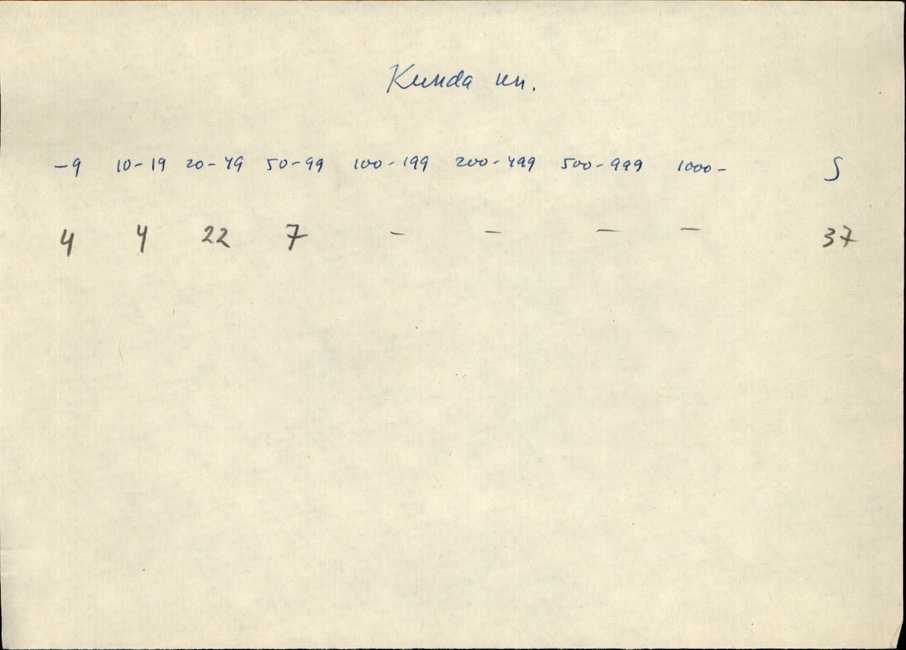 Kunda vn.
-9 10-19 20-49 50-99 100-199 200-499 500-999 1000- S
4 4 22 7 - - - - 37